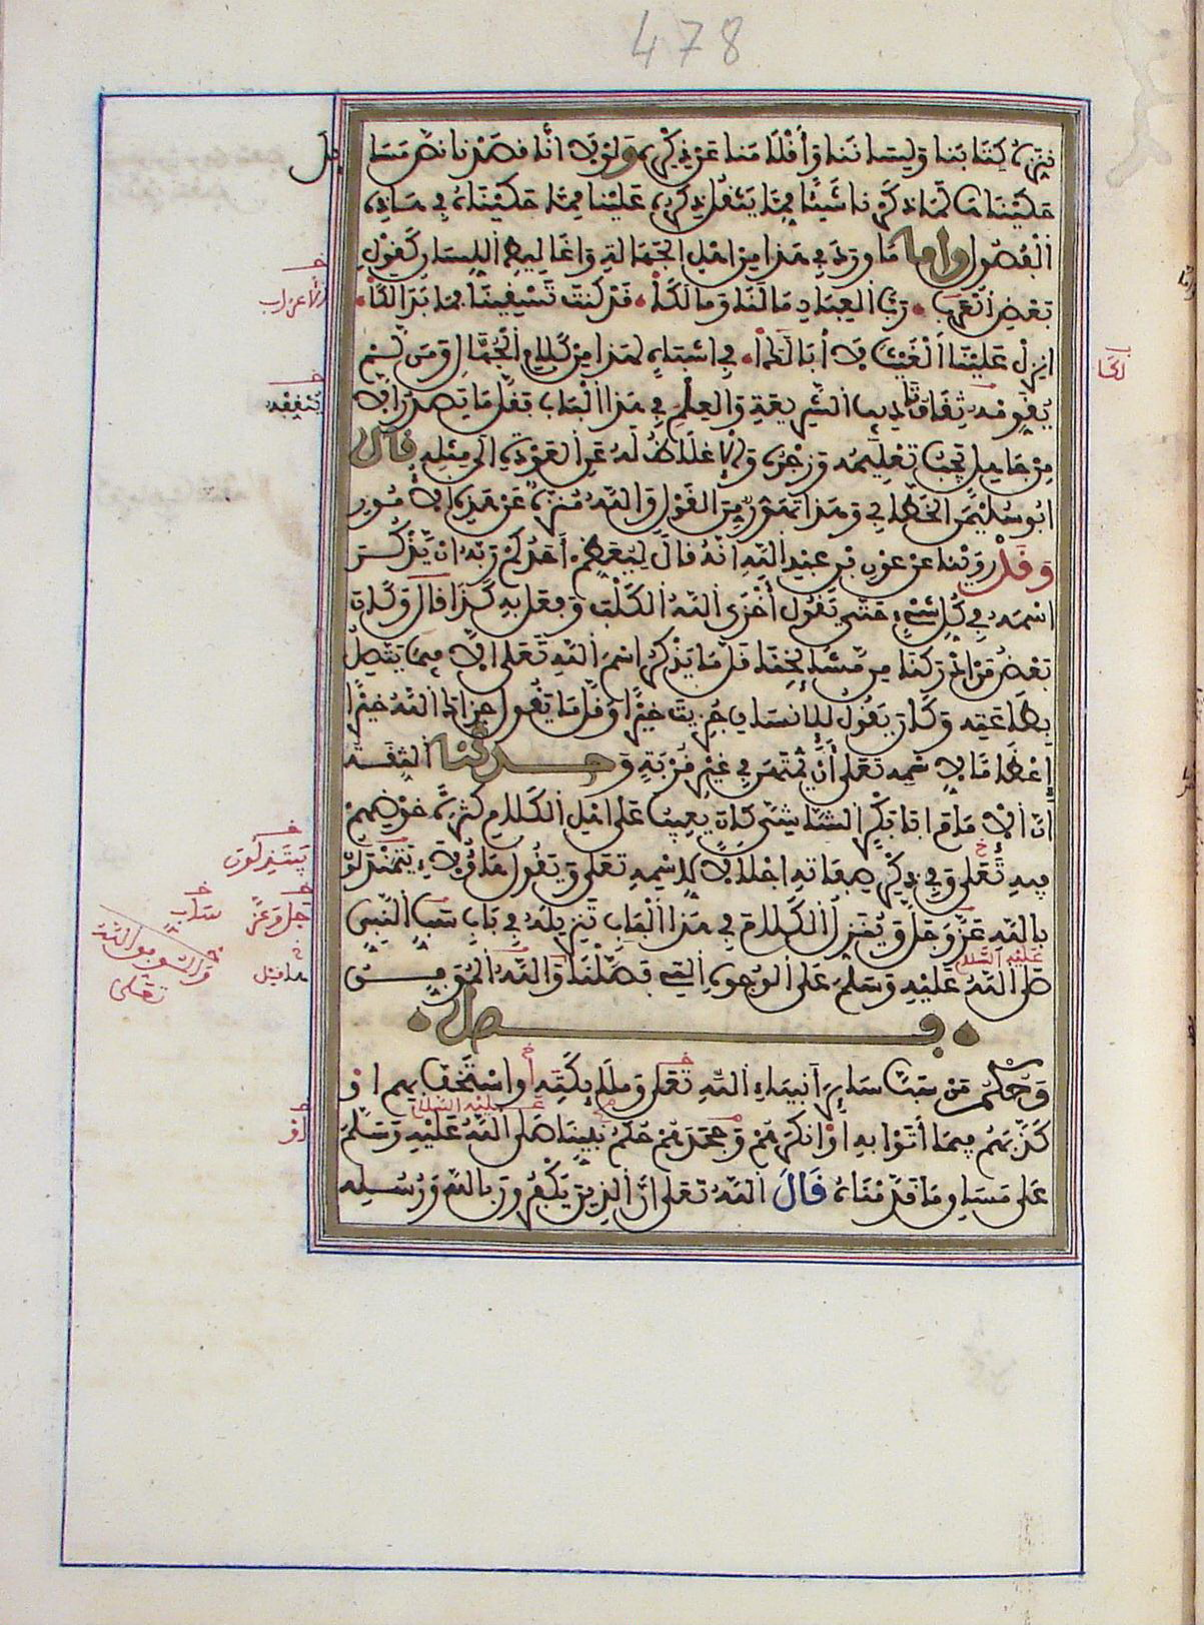 478
ننزه كتابنا ولساننا وأقلامنا عن ذكره ولولا أنا قصدنا نص مسائل
حكيناها لما ذكرنا شيئا مما يثقل ذكره علينا مما حكيناه في هذه
الفصول وأما ما ورد في هذا من أهل الجهالة وأغاليط اللسان كقول
بعض الأعراب رب العباد ما لنا وما لكا قد كنت تسقينا فما بدا لكا
أنزل علينا الغيث لا أبا لكا في أشباه لهذا من كلام الجهال ومن لم
يقومه ثقاف تاديب الشريعة والعلم في هذا الباب فقلما يصدر إلا
من جاهل يجب تعليمه وزجره والإغلاظ له عن العودة إلى مثله قال
ابو سليمن الخطابي وهذا تهور من القول والله منزه عن هذه الأمور
وقد روينا عن عون بن عبد الله أنه قال ليعظم أحدكم ربه ان يذكر
اسمه في كل شيء حتى تقول أخزى الله الكلب وفعل به كذا قال وكان
بعض من أدركنا من مشايخنا قل ما يذكر اسم الله تعلى إلا فيما يتصل
بطاعته وكان يقول للإنسان جزيت خيرا وقل ما يقول جزاك الله خيرا
إعظاما لاسمه تعلى أن يمتهن في غير قربة وحدثنا الثقة
أن الإمام ابا بكر الشاشي كان يعيب على اهل الكلام كثرة خوضهم
فيه تعلى وفي ذكر صفاته اجلالا لاسمه تعلى ويقول هاؤلاء يتمندلون
بالله عز وجل وينزل الكلام في هذا الباب تنزيله في باب ساب النبي
عليه السلام
صلى الله عليه وسلم على الوجوه التي فصلنا والله الموفق
فصل
وحكم من سب ساير أنبياء الله تعلى وملائكته أو استخف بهم او
عليه السلام
كذبهم فيما أتوا به او انكرهم وجحدهم حكم نبينا صلى الله عليه وسلم
على مساق ما قدمناه قال الله تعلى ان الذين يكفرون بالله ورسله
لكا
جل وعز
ساب
تعلى
أو